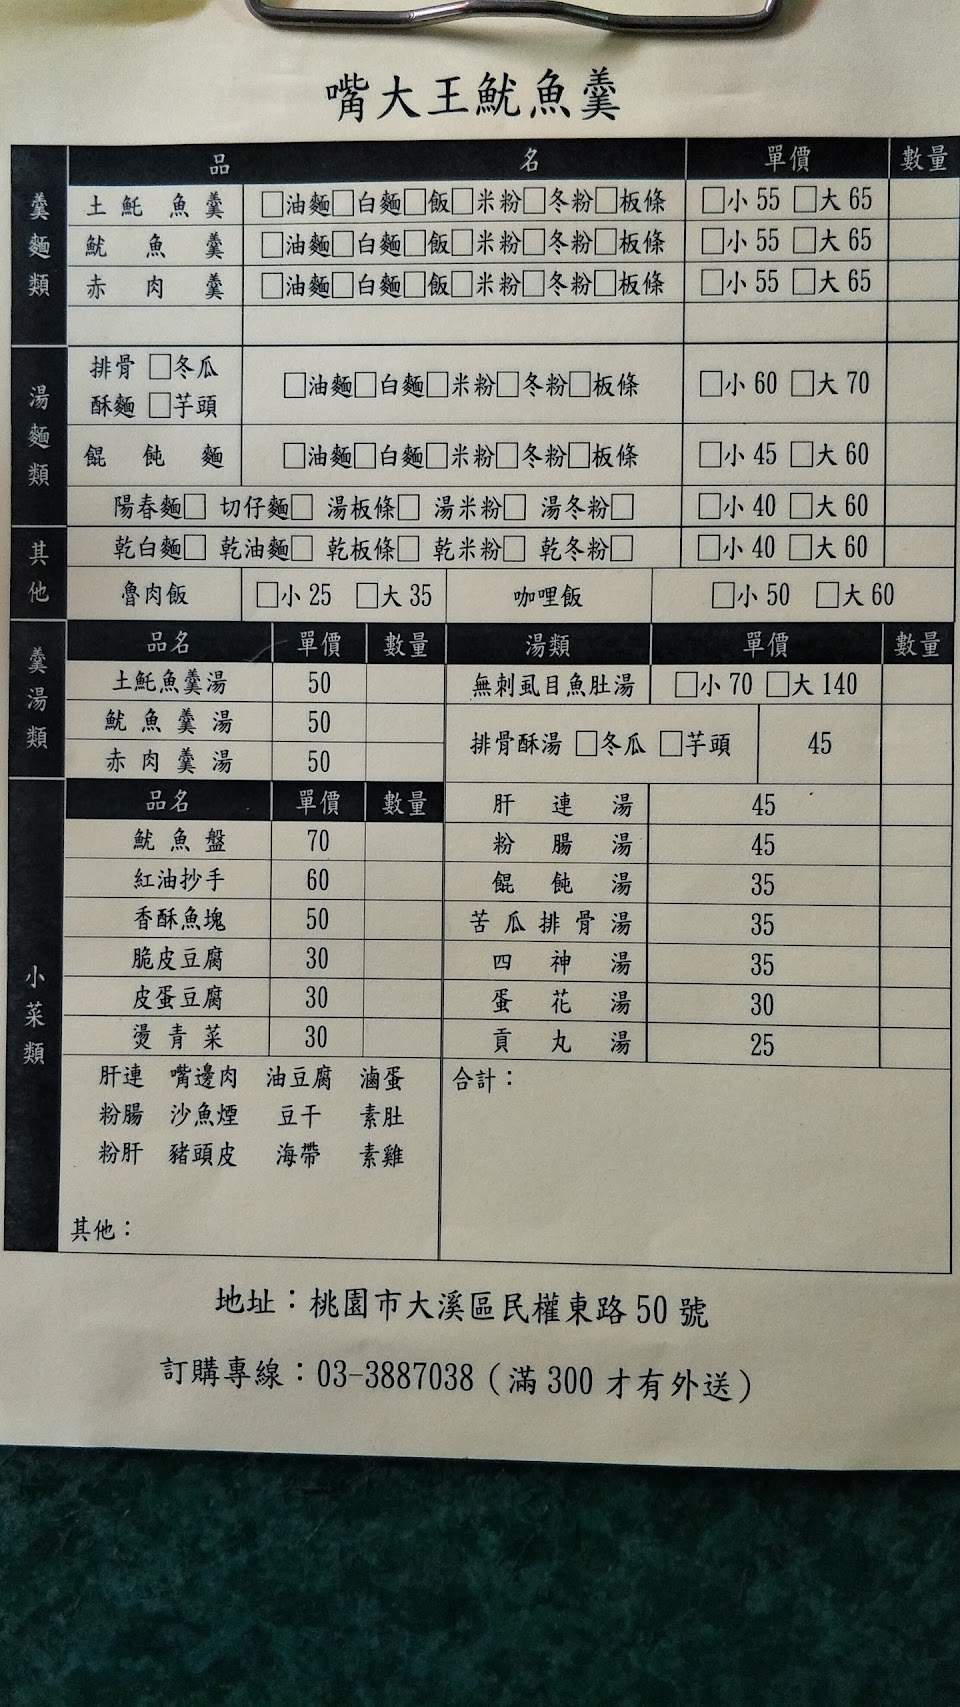 嘴大王魷魚羹
品 名 單價 數量
羹麵類
土魠魚羹 □油麵□白麵□飯□米粉□冬粉□板條 □小 55 □大 65
魷魚羹 □油麵□白麵□飯□米粉□冬粉□板條 □小 55 □大 65
赤肉羹 □油麵□白麵□飯□米粉□冬粉□板條 □小 55 □大 65
湯麵類
排骨 □冬瓜
酥麵 □芋頭
□油麵□白麵□米粉□冬粉□板條 □小 60 □大 70
餛飩麵 □油麵□白麵□米粉□冬粉□板條 □小 45 □大 60
陽春麵□ 切仔麵□ 湯板條□ 湯米粉□ 湯冬粉□ □小 40 □大 60
其他
乾白麵□ 乾油麵□ 乾板條□ 乾米粉□ 乾冬粉□ □小 40 □大 60
魯肉飯 □小 25 □大 35 咖哩飯 □小 50 □大 60
羹湯類
品名 單價 數量
土魠魚羹湯 50
魷魚羹湯 50
赤肉羹湯 50
小菜類
品名 單價 數量
魷魚盤 70
紅油抄手 60
香酥魚塊 50
脆皮豆腐 30
皮蛋豆腐 30
燙青菜 30
肝連 嘴邊肉 油豆腐 滷蛋
粉腸 沙魚煙 豆干 素肚
粉肝 豬頭皮 海帶 素雞
其他：
湯類 單價 數量
無刺虱目魚肚湯 □小 70 □大 140
排骨酥湯 □冬瓜 □芋頭 45
肝連湯 45
粉腸湯 45
餛飩湯 35
苦瓜排骨湯 35
四神湯 35
蛋花湯 30
貢丸湯 25
合計：
地址：桃園市大溪區民權東路 50 號
訂購專線：03-3887038（滿 300 才有外送）